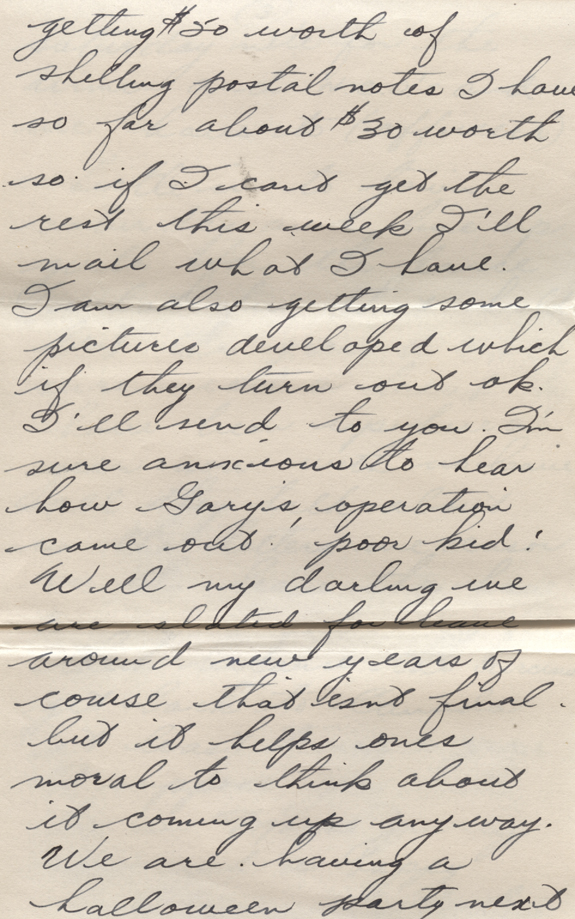 getting $50 worth of
shelling postal notes I have
so far about $30 worth
so if I cant get the
rest this week I'll
mail what I have.
I am also getting some
pictures developed which
if they turn out ok.
I'll send to you. I'm
sure anxcious to hear
how Gary's operation
came out. poor kid!
Well my darling we
are slated for leave
around new years of
course that isnt final.
but it helps ones
moral to think about
it coming up any way.
We are. having a
halloween party next